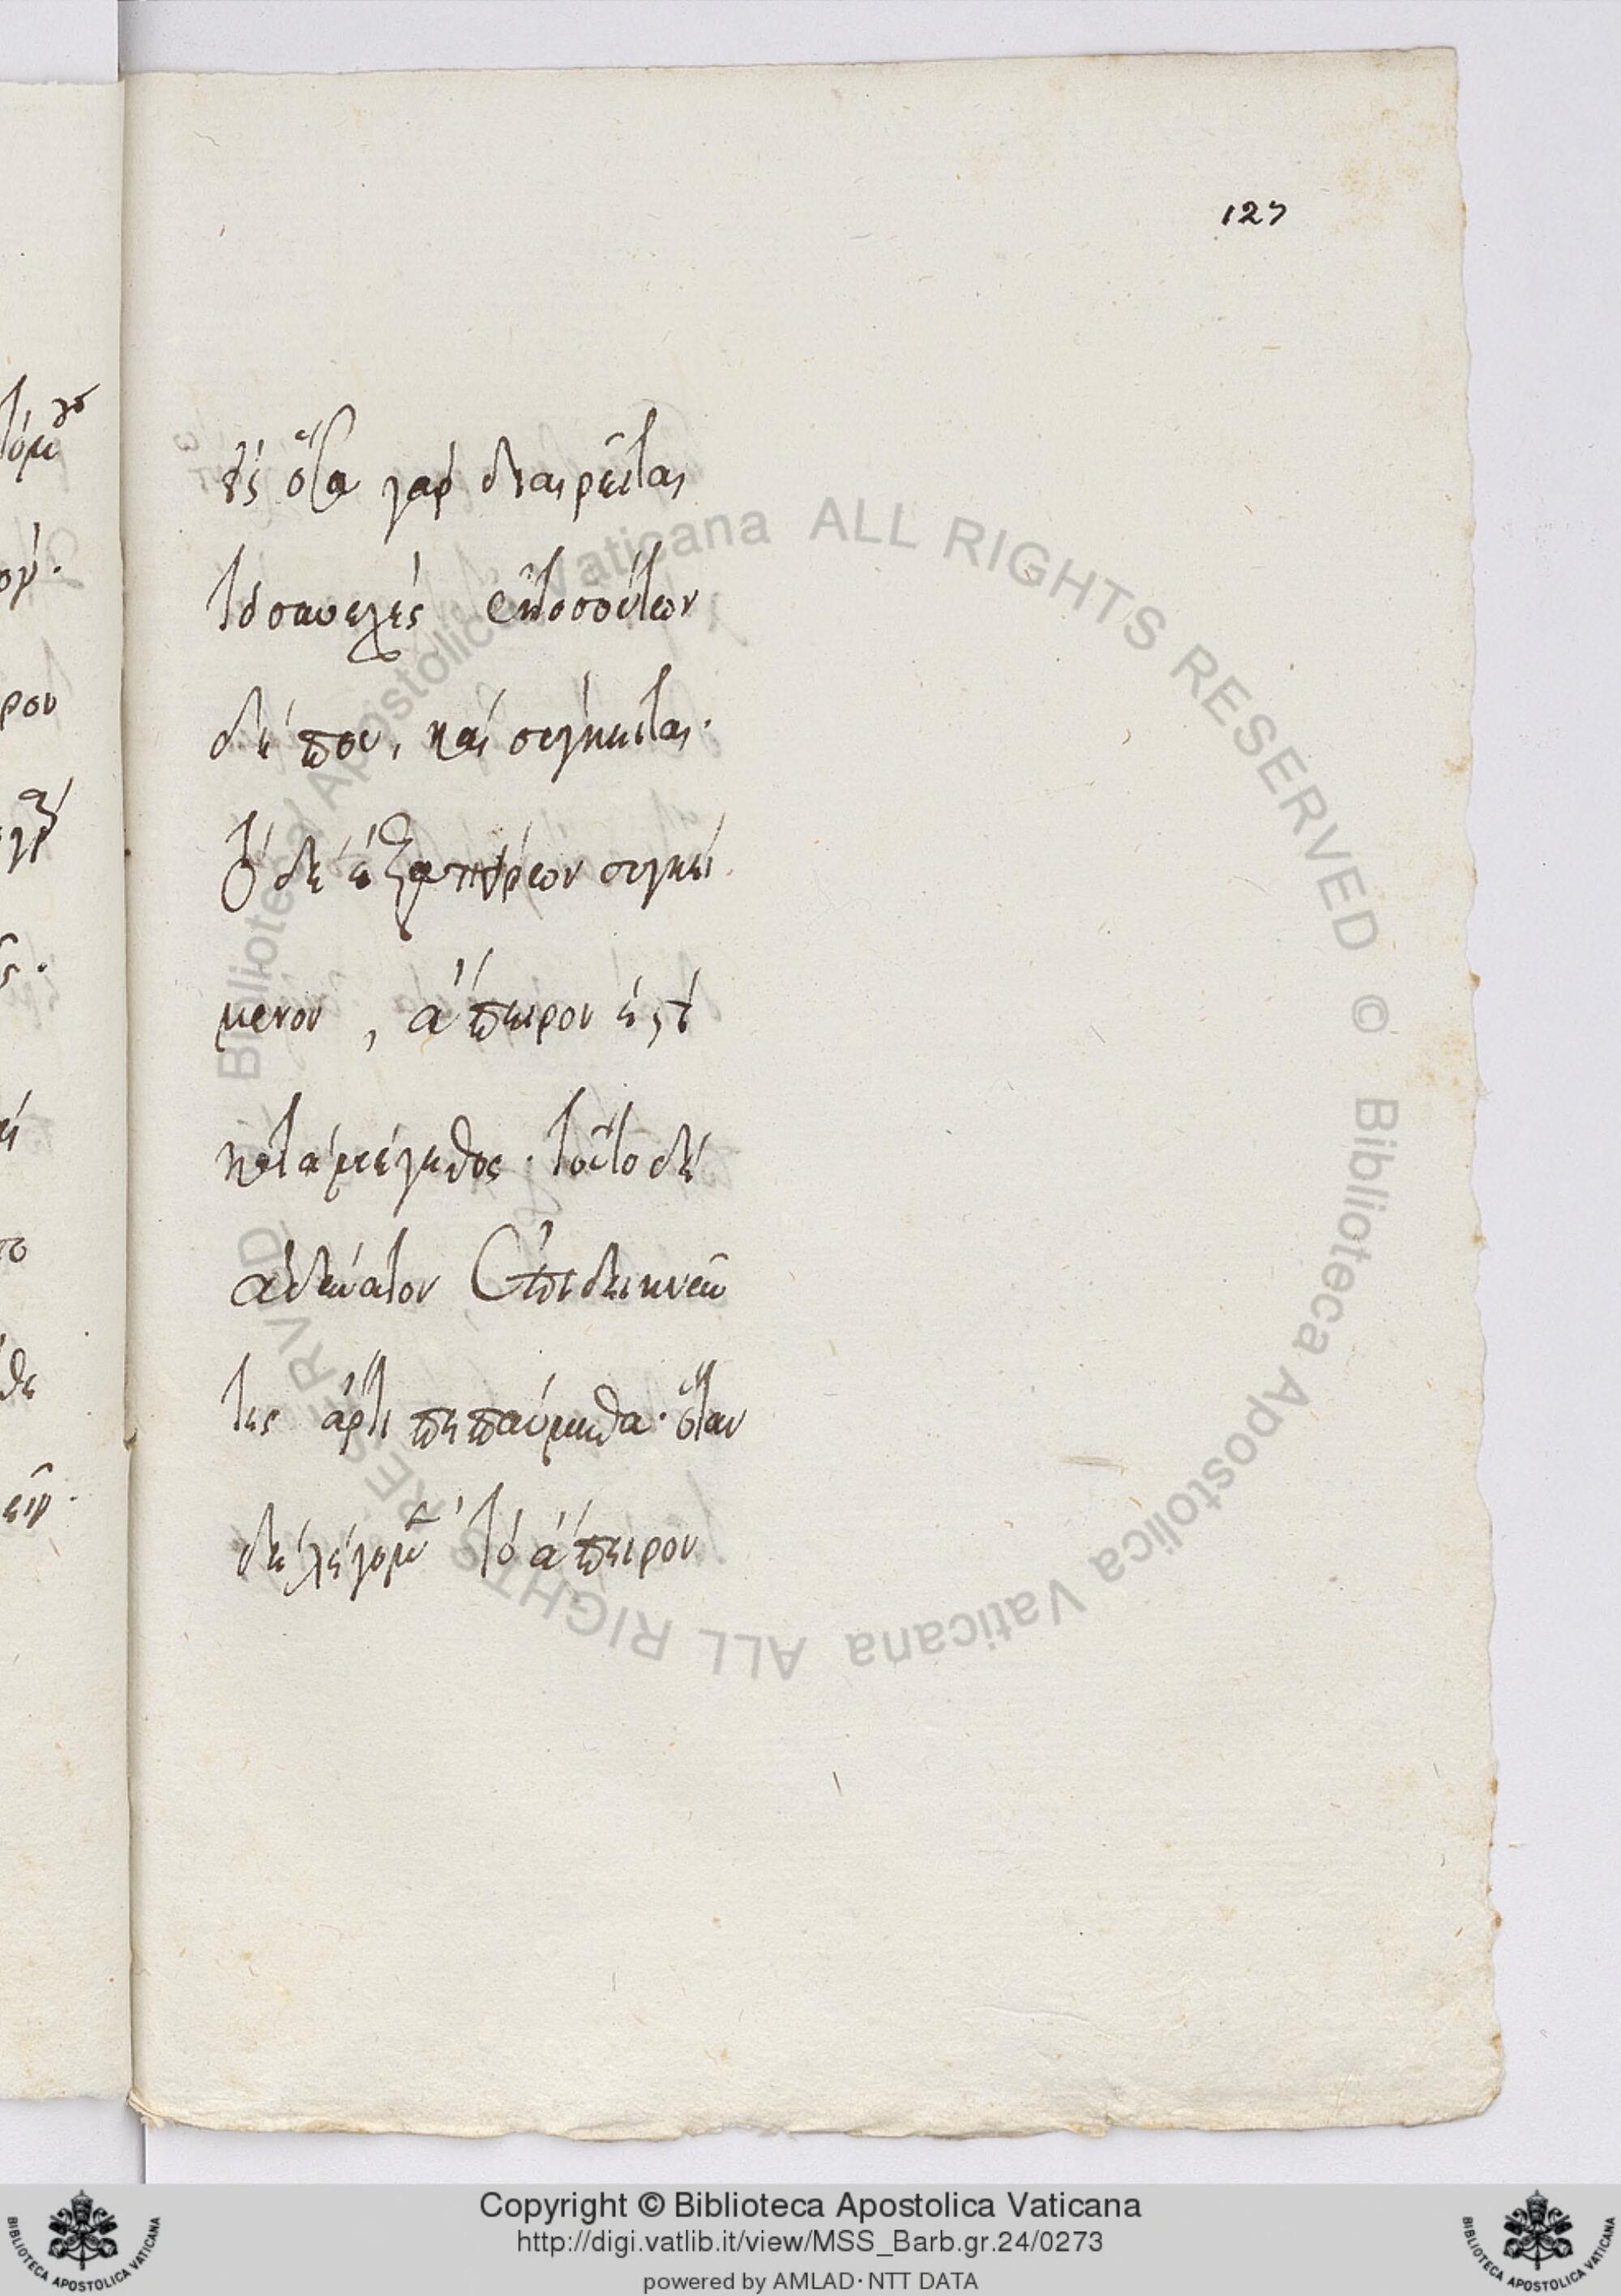 127
εἰς ὅσα γὰρ διαιρεῖται
τὸ συνεχές ἐκ τοσούτων
δή που, καὶ σύγκειται.
τὸ δὲ ἐξ ἀπείρων συγκεί
μενον, ἄπειρον ἐστὶ
κατὰ μέγεθος. τοῦτο δὲ
ἀδύνατον ἐπιδεικνύν
τες ἄρτι πεπαύμεθα. ὅταν
δὲ λέγομεν τὸ ἄπειρον
Biblioteca Apostolica Vaticana ALL RIGHTS RESERVED © Biblioteca Apostolica Vaticana ALL RIGHTS RESERVED
Copyright © Biblioteca Apostolica Vaticana
http://digi.vatlib.it/view/MSS_Barb.gr.24/0273
powered by AMLAD·NTT DATA
BIBLIOTECA APOSTOLICA VATICANA
BIBLIOTECA APOSTOLICA VATICANA